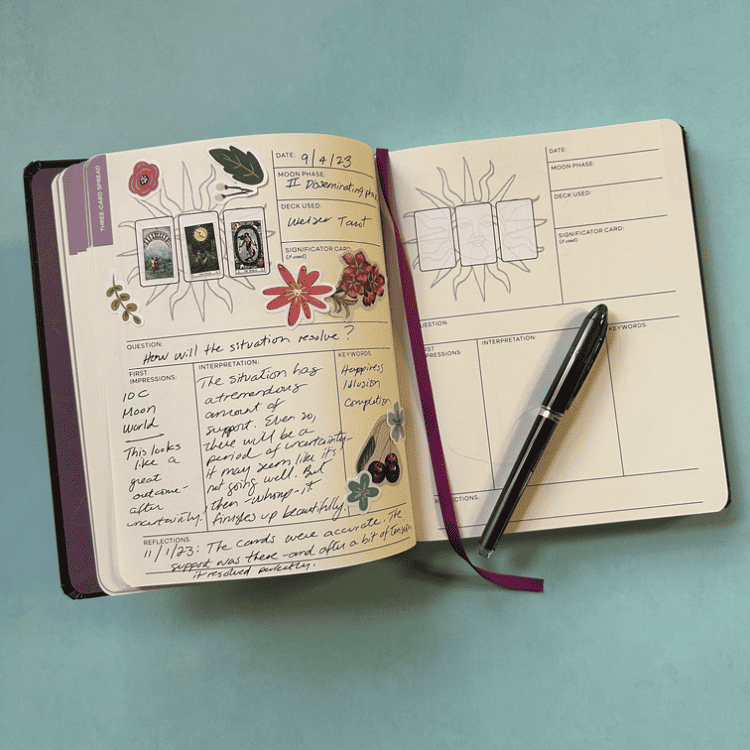 THREE-CARD SPREAD
DATE: 9/4/23
MOON PHASE:
II Disseminating pha
DECK USED:
Weiser Tarot
SIGNIFICATOR CARD:
(if used)
QUESTION:
How will the situation resolve?
FIRST
IMPRESSIONS:
10C
Moon
World
This looks
like a
great
outcome-
after
uncertainty!
INTERPRETATION:
The situation has
a tremendous
amount of
support. Even so,
there will be a
period of uncertainty-
it may seem like it's
not going well. But
then -whomp- it
finishes up beautifully.
KEYWORDS:
Happiness
Illusion
Completion
REFLECTIONS:
11/1/23: The cards were accurate. The
support was there-and after a bit of tension
it resolved perfectly.
DATE:
MOON PHASE:
DECK USED:
SIGNIFICATOR CARD:
(if used)
QUESTION:
FIRST
IMPRESSIONS:
INTERPRETATION:
KEYWORDS:
REFLECTIONS: